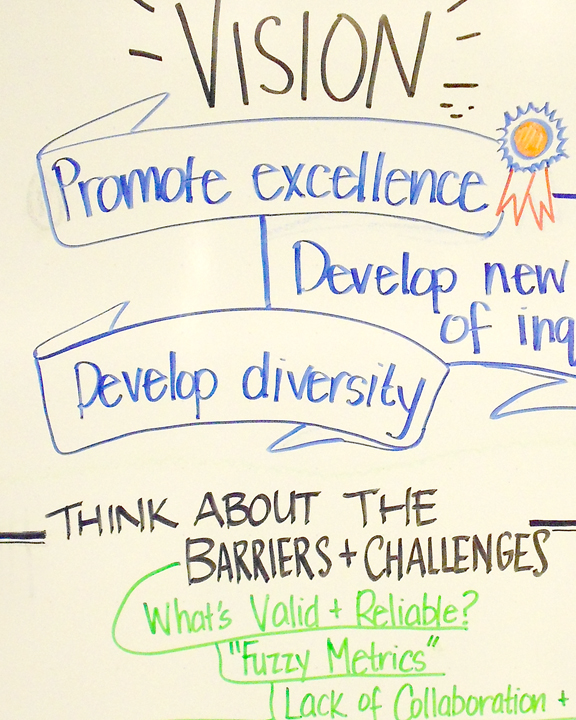 VISION
Promote excellence
Develop new
of
Develop diversity
THINK ABOUT THE
BARRIERS + CHALLENGES
What's Valid + Reliable?
"Fuzzy Metrics"
Lack of Collaboration +